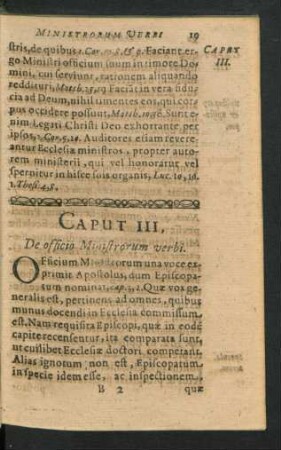 MINISTRORUM VERBI 19
stris, de quibus 1. Cor. 11. 8. & 9. Faciant er-
CAPUT
III.
go Ministri officium suum in timore Do-
mini, cui serviunt, rationem aliquando
reddituri, Matth. 25, 19 Faciāt in vera fidu-
cia ad Deum, nihil timentes eos, qui cor-
pus occidere possunt, Matth. 10. Sunt e-
nim Legati Christi Deo exhortante per
ipsos, 2. Cor. 5. Auditores etiam reve-
reantur Ecclesiæ ministros, propter auto-
rem ministerii, qui vel honoratur vel
spernitur in hisce suis organis, Luc. 10, 16.
1. Thess. 4, 8.
CAPUT III.
De officio Ministrorum verbi.
OFficium Ministrorum una voce ex-
primit Apostolus, dum Episcopa-
tum nominat, Quæ vox ge-
neralis est, pertinens ad omnes, quibus
munus docendi in Ecclesia commissum
est. Nam requisita Episcopi, quæ in eodē
capite recensentur, ita comparata sunt,
ut cuilibet Ecclesiæ doctori competant.
Alias ignotum non est, Episcopatum
in specie idem esse, ac inspectionem,
B 2 quæ